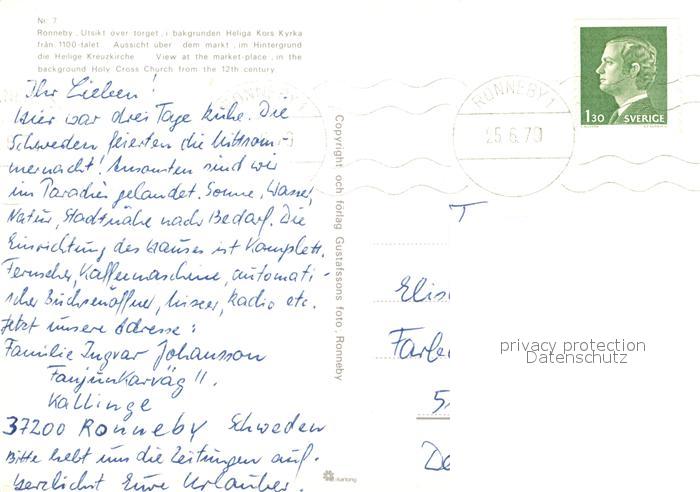 Nr. 7
Ronneby. Utsikt över torget, i bakgrunden Heliga Kors Kyrka
från 1100-talet. Aussicht über dem markt, im Hintergrund
die Heilige Kreuzkirche View at the market-place, in the
background Holy Cross Church from the 12th century
Ihr Lieben!
Hier war drei Tage Ruhe. Die
Schweden feierten die Mittsom-
mernacht! Ansonsten sind wir
im Paradies gelandet. Sonne, Wasser,
Natur, Stadtnähe nach Bedarf. Die
Einrichtung des Hauses ist komplett.
Fernseher, Kaffeemaschine, automati-
scher Büchsenöffner, Mixer, Radio etc.
Jetzt unsere Adresse:
Familie Ingvar Johansson
Fanjunkarväg 11.
Kallinge
37200 Ronneby Schweden
Bitte hebt uns die Zeitungen auf.
Herzlichst Eure Urlauber.
Copyright och förlag Gustafssons foto, Ronneby
RONNEBY 1
25.6.79
1 30 SVERIGE
Elis
Farbe
5
De
privacy protection
Datenschutz